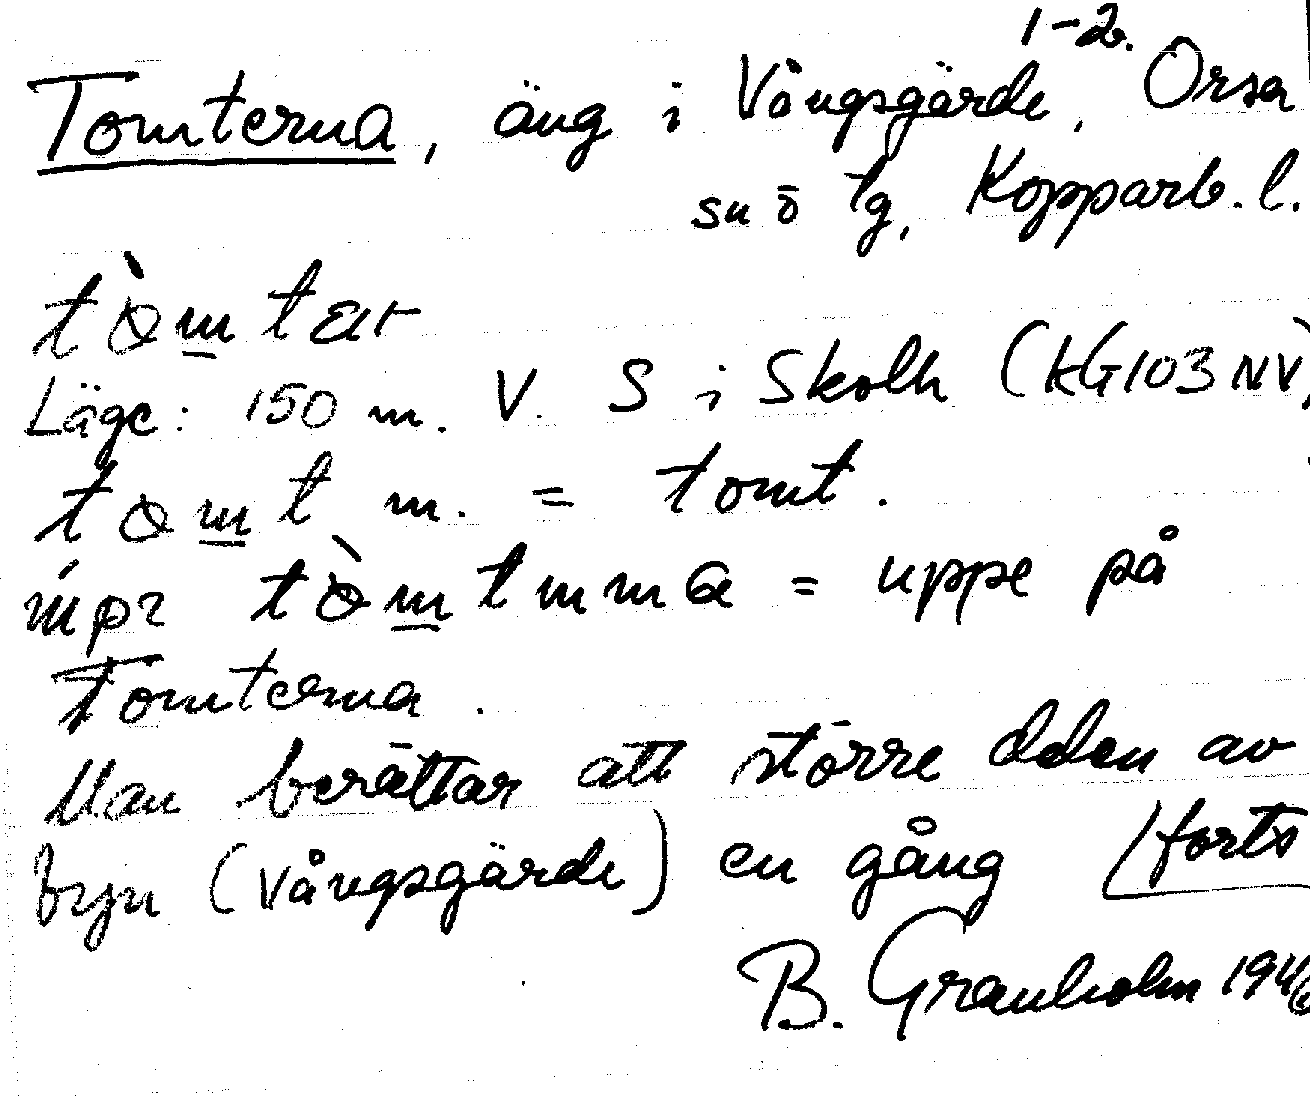 1-2.
Tomterna, äng i Vångsgärde, Orsa
sn ö tg, Kopparb. l.
Läge: 150 m. V. S i Skolh (kG103NV)
m. = tomt.
= uppe på
Tomterna.
Man berättar att större delen av
byn (Vångsgärde) en gång (forts
B. Granholm 194